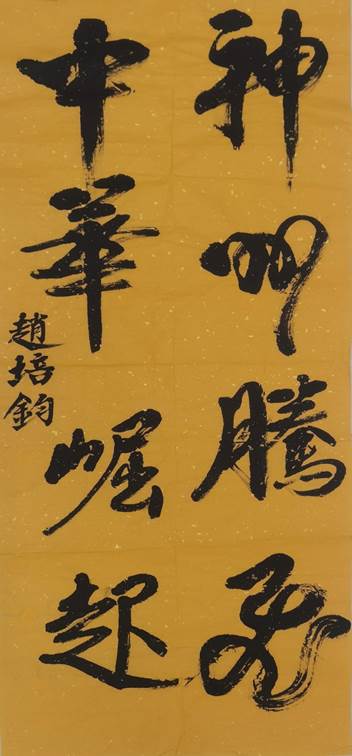 神州腾飞
中華崛起
趙培鈞